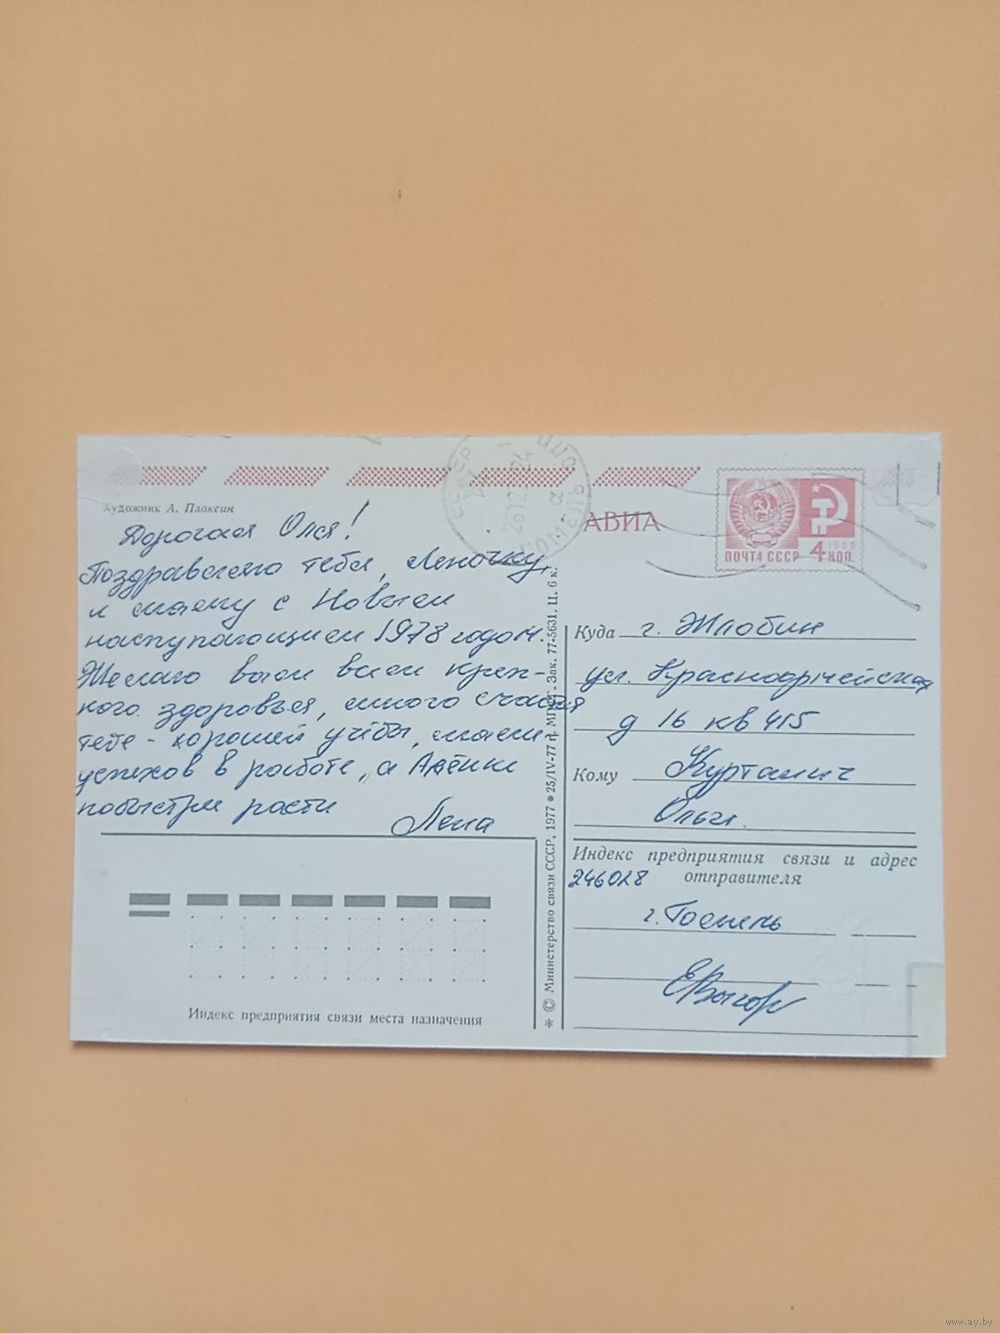 Художник А. Плаксин
Дорогая Оля!
Поздравляю тебя, Леночку,
и маму с Новым
наступающим 1978 годом.
Желаю вам всем креп-
кого здоровья, много счастья
тебе - хорошей учёбы, маме
успехов в работе, а Алёнке
побыстрей расти
Лена
Индекс предприятия связи места назначения
* © Министерство связи СССР, 1977 • 25/IV-77 г. Зак. 77-5631. Ц. 6 к.
АВИА
ПОЧТА СССР 4 КОП.
1966
Куда г. Жлобин
ул. Красноармейская
д 16 кв 415
Кому Куртанич
Ольги.
Индекс предприятия связи и адрес
отправителя
246028
г. Гомель
www.ay.by